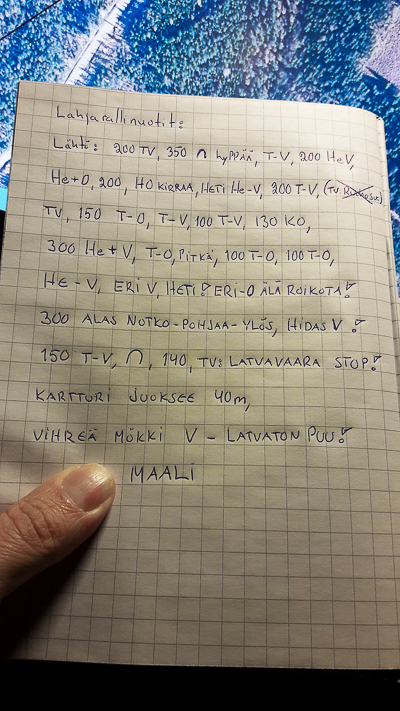 Lahjarallinuotit:
Lähtö: 200 TV, 350 ∩ hyPPÄÄ, T-V, 200 HeV,
He+O, 200, HO KiRRAA, HETi He-V, 200 T-V, (TV
TV, 150 T-O, T-V, 100 T-V, 130 KO,
300 He+V, T-O, PiTKÄ, 100 T-O, 100 T-O,
HE-V, ERi V, HETi! ERi-O ÄLÄ ROiKOTA!
300 ALAS NOTKO-POHJAA-YLÖS, HiDAS V!
150 T-V, ∩, 140, TV: LATVAVAARA STOP!
KARTTURi JUOKSEE 40m,
ViHREÄ MÖKKi V - LATVATON PUU!
MAALi